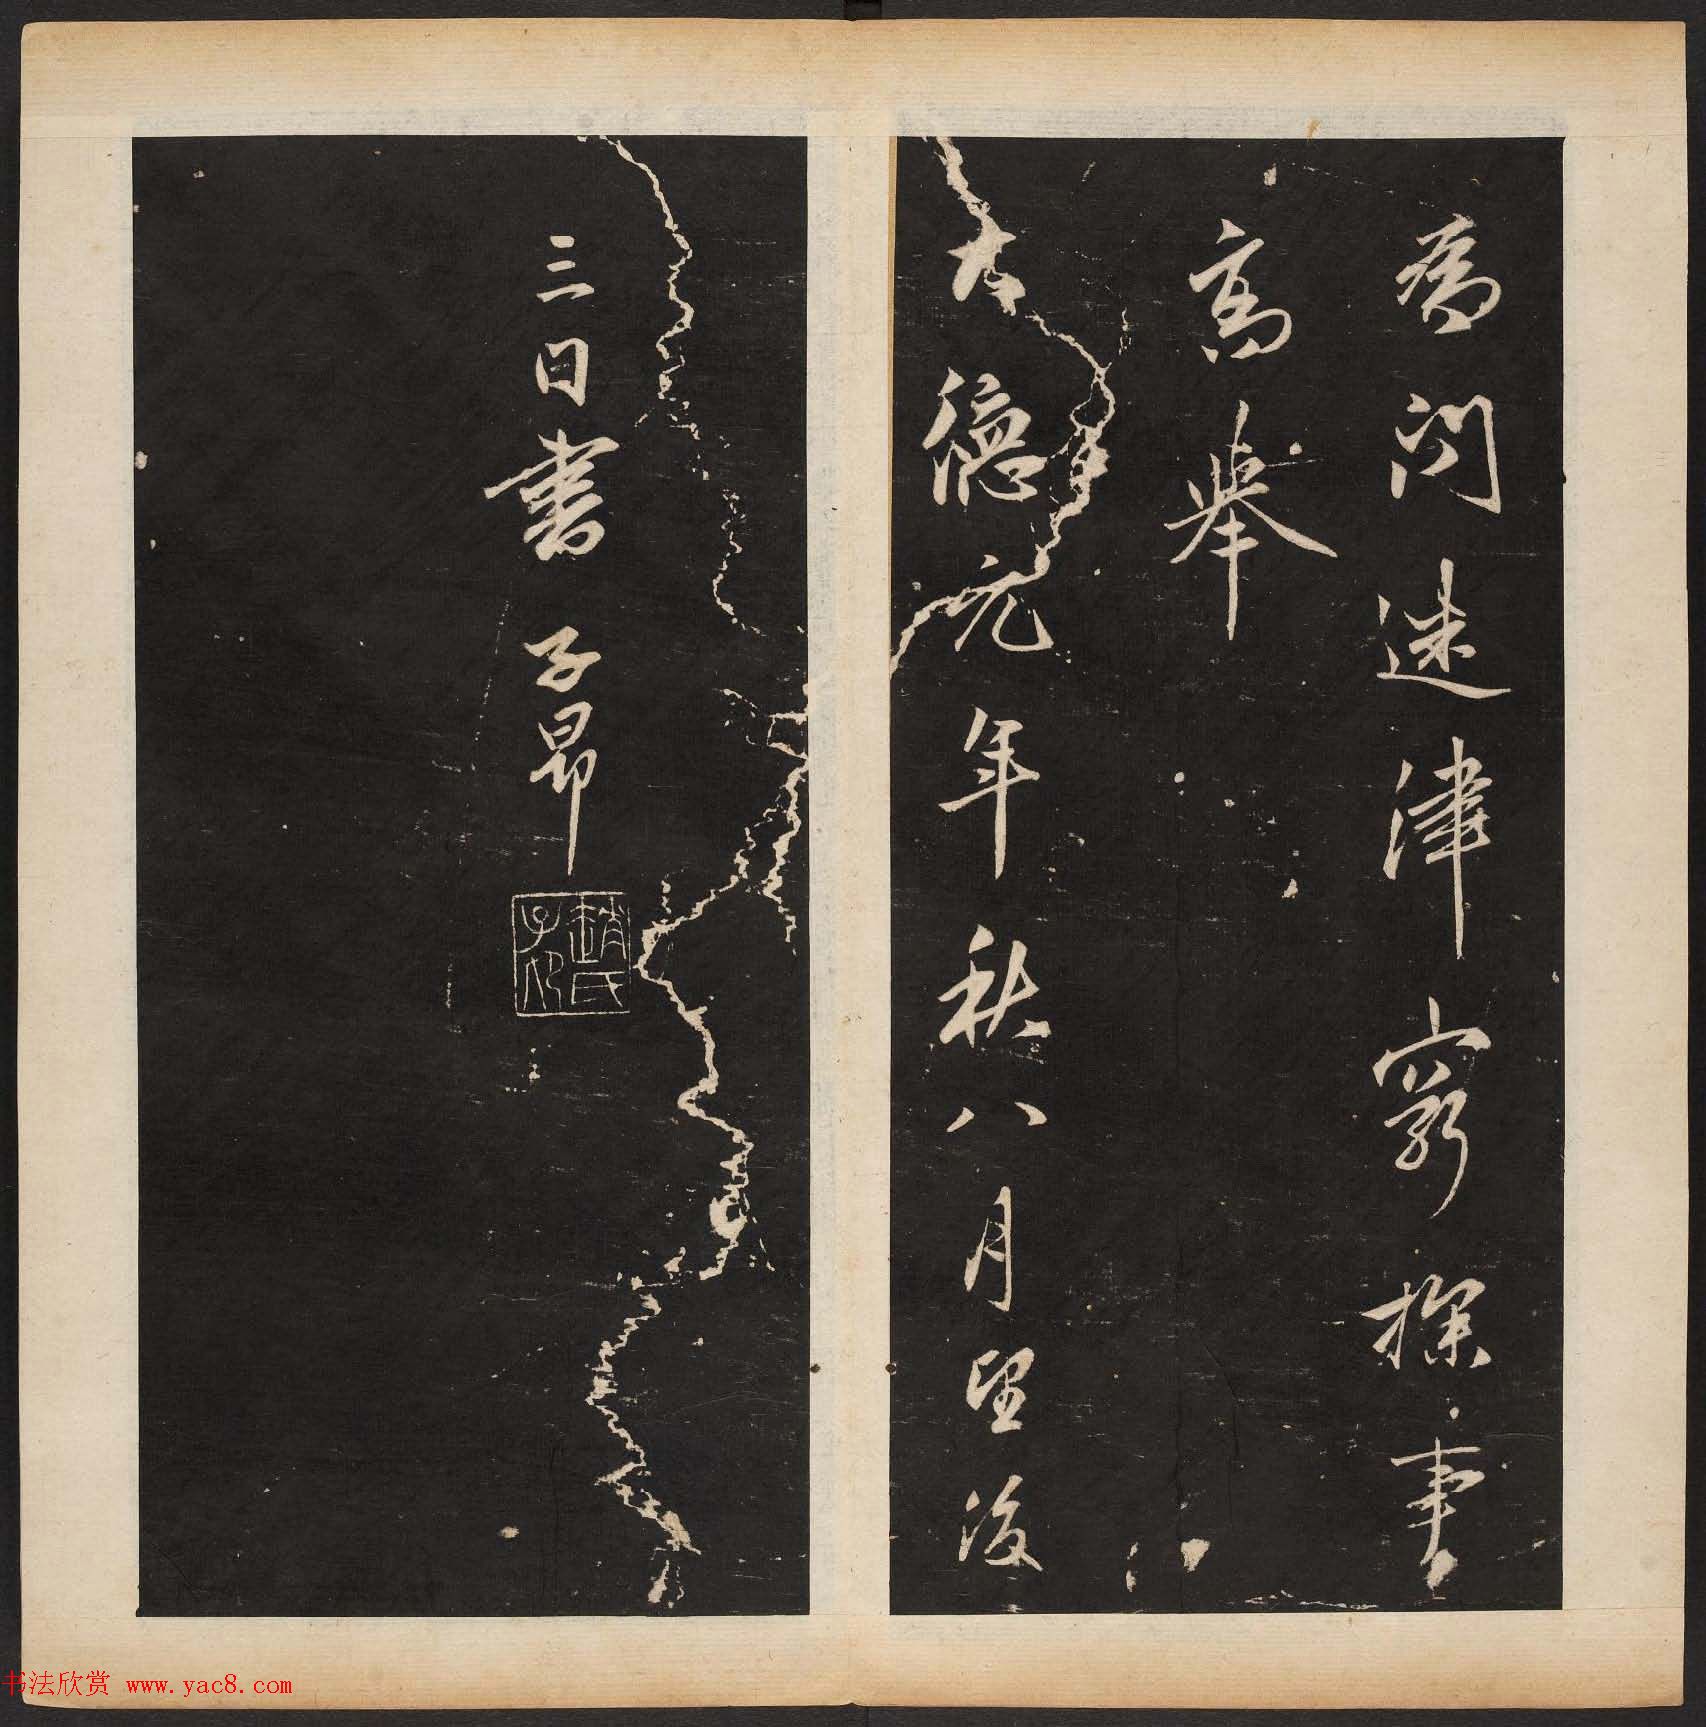 為問迷津窮採事
高舉
大德元年秋八月望後
三日書 子昂
趙氏子昂
书法欣赏 www.yac8.com